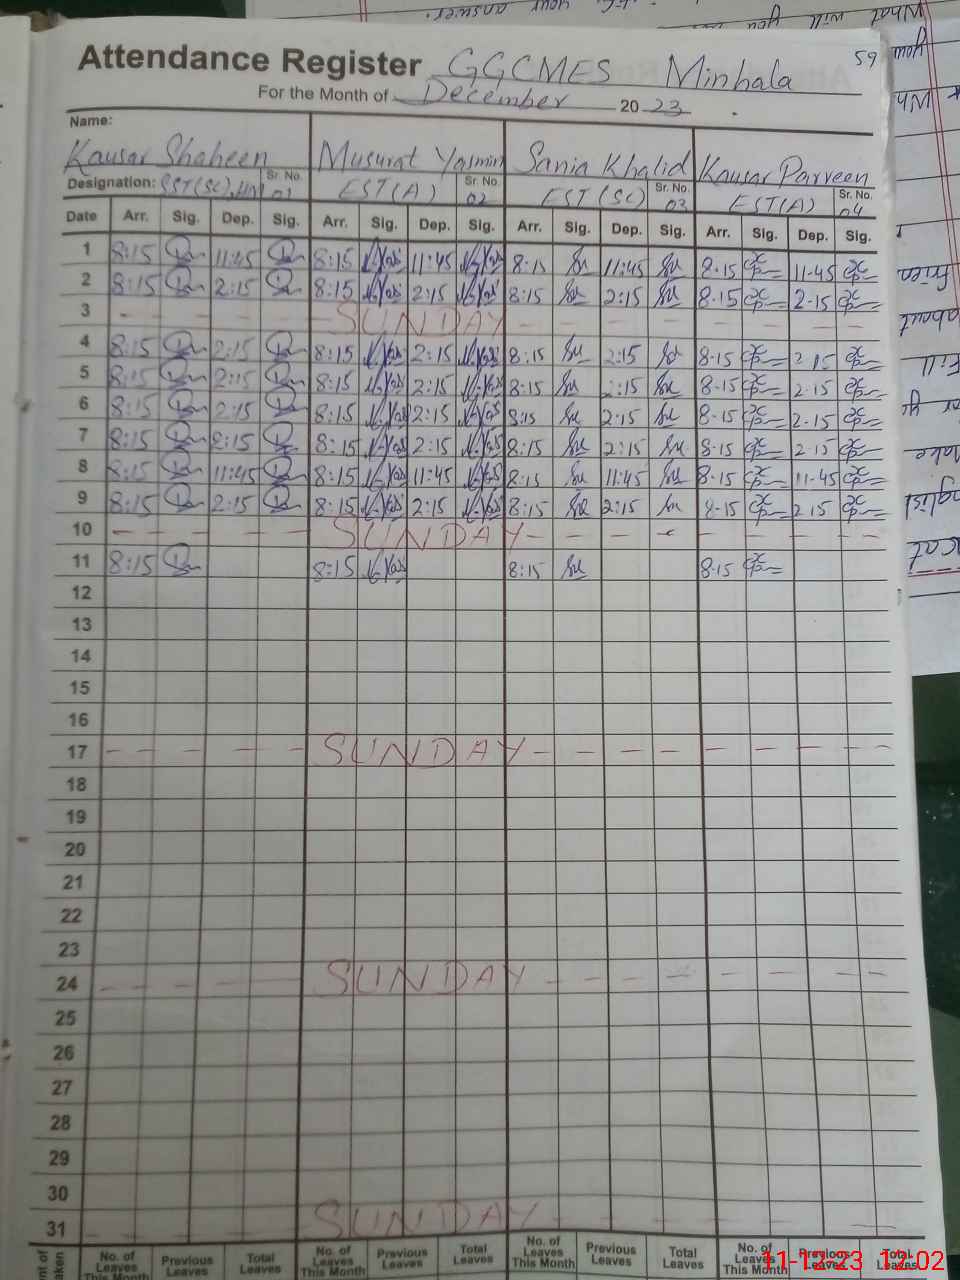 What will you
your answer.
59
Attendance Register GGCMES Minhala
For the Month of December 2023
Name:
Kausar Shaheen Musurat Yasmin Sania Khalid Kausar Parveen
Designation: Sr. No. 01 EST(A) Sr. No. 02 EST (SC) Sr. No. 03 EST(A) Sr. No. 04
Date Arr. Sig. Dep. Sig. Arr. Sig. Dep. Sig. Arr. Sig. Dep. Sig. Arr. Sig. Dep. Sig.
1 8:15 11:45 8:15 11:45 8:15 11:45 8-15 11-45
2 8:15 2:15 8:15 2:15 8:15 2:15 8-15 2-15
3 SUNDAY
4 8:15 2:15 8:15 2:15 8:15 2:15 8-15 2 15
5 8:15 2:15 8:15 2:15 8:15 2:15 8-15 2-15
6 8:15 2:15 8:15 2:15 8:15 2:15 8-15 2-15
7 8:15 2:15 8:15 2:15 8:15 2:15 8-15 2-15
8 8:15 11:45 8:15 11:45 8:15 11:45 8-15 11-45
9 8:15 2:15 8:15 2:15 8:15 2:15 8-15 2 15
10 SUNDAY
11 8:15 8:15 8:15 8-15
12
13
14
15
16
17 SUNDAY
18
19
20
21
22
23
24 SUNDAY
25
26
27
28
29
30
31 SUNDAY
No. of Leaves This Month Previous Leaves Total Leaves No. of Leaves This Month Previous Leaves Total Leaves No. of Leaves This Month Previous Leaves Total Leaves No. of Leaves This Month Previous Leaves Total Leaves
11-12-23 12:02